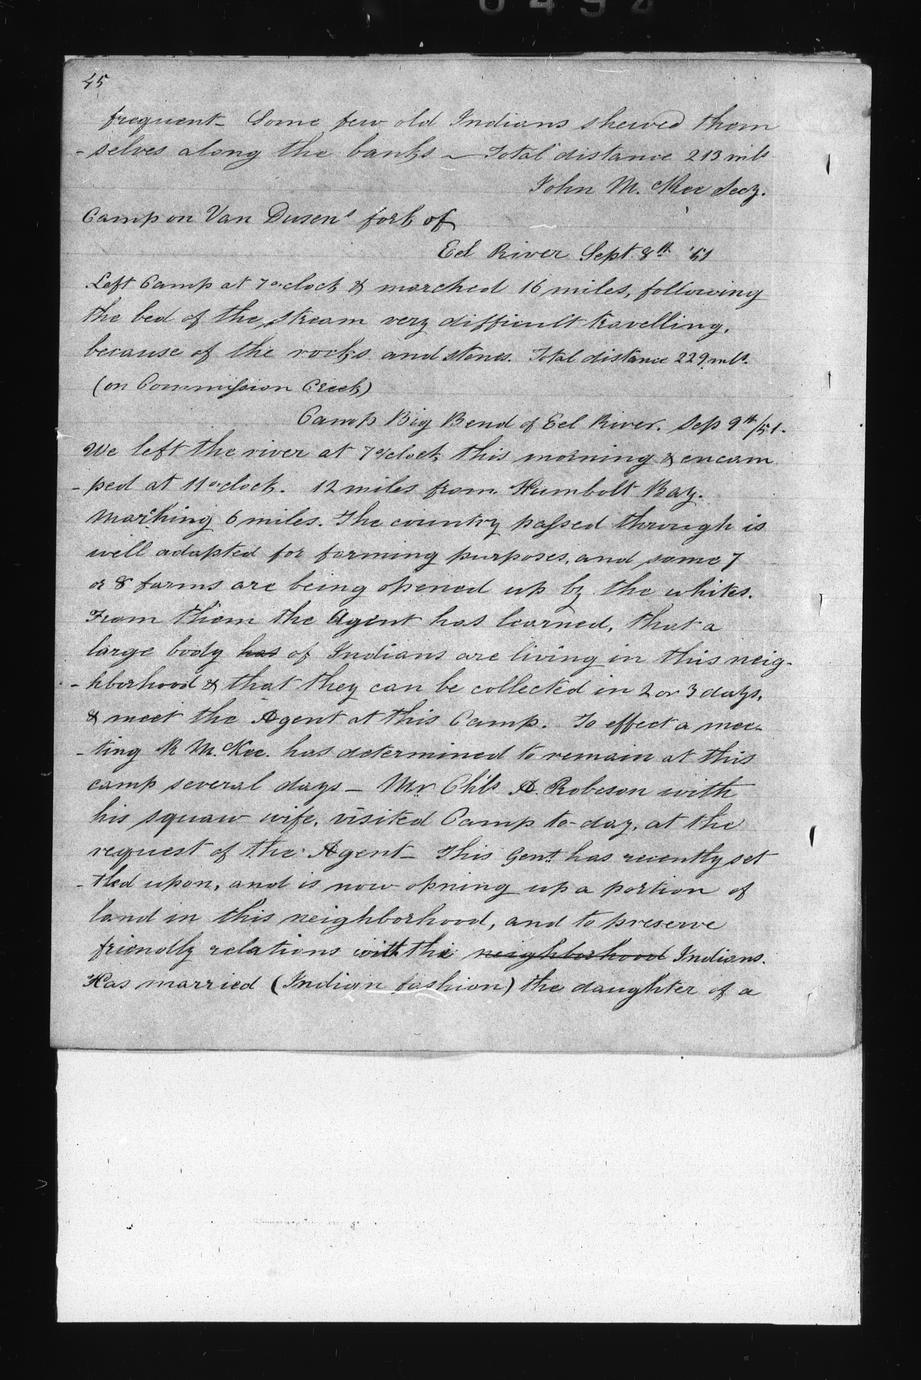 45
frequent - Some few old Indians shewed them
- selves along the banks - Total distance 213 mls
John M. McKee Secy.
Camp on Van Dusens fork of
Eel River Sept. 8th '51
Left Camp at 7 o'clock & marched 16 miles, following
the bed of the stream very difficult travelling,
because of the rocks and stones. Total distance 229 mls.
(on Commission Creek)
Camp Big Bend of Eel River. Sep 9th/51.
We left the river at 7 o'clock this morning & encam
- ped at 11 o'clock. 12 miles from Humbolt Bay.
Marching 6 miles. The country passed through is
well adapted for farming purposes, and some 7
or 8 farms are being opened up by the whites.
From them the Agent has learned, that a
large body has of Indians are living in this neig-
- hborhood & that they can be collected in 2 or 3 days,
& meet the Agent at this Camp. To effect a mee-
- ting R McKee. has determined to remain at this
camp several days - Mr Chls A. Robeson with
his squaw wife, visited Camp to-day, at the
request of the Agent - This Gent. has recently set
- tled upon, and is now opning up a portion of
land in this neighborhood, and to preserve
friendly relations with the neighborhood Indians.
Has married (Indian fashion) the daughter of a